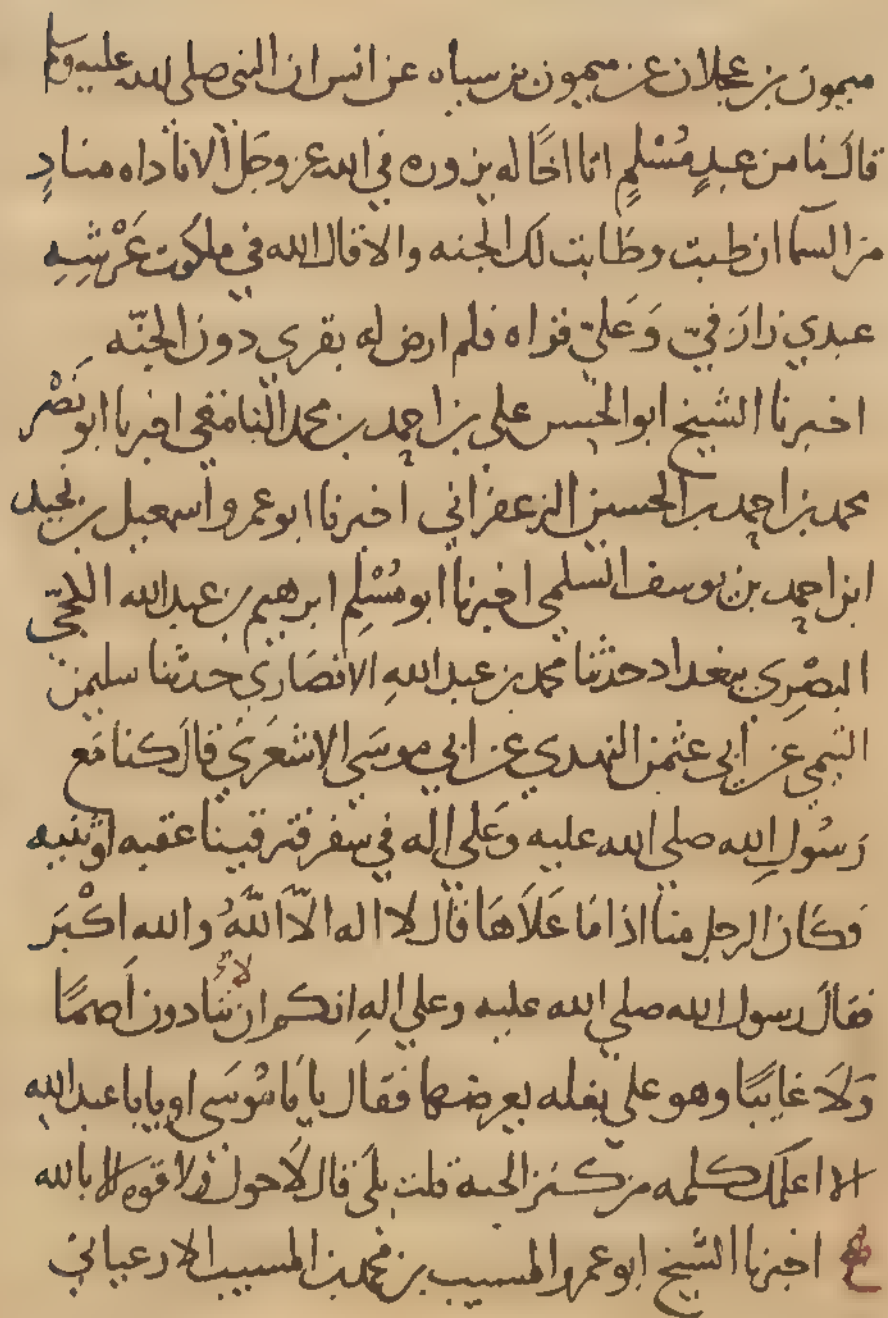 ميمون بن عجلان عن ميمون بن سياه عن انس ان النبى صلى الله عليه وسلم
قالَ مَا من عبدٍ مُسْلمٍ اتا اخًا له يزوره في الله عز وجَل الا ناداه منادٍ
من السمآ ان طبت وطَابت لك الجنه والا قال الله في ملكُوت عَرْشِهِ
عبدي زارَ فيّ وَعَليّ قراه فلم ارض له بقرى دون الجنّه
اخبرنا الشيخ ابو الحسن على بن احمد بن محمد اخبرنا ابو نَصْر
محمد بن احمد بن الحسين الزعفراني اخبرنا ابو عمرو اسمعيل بن نجيد
ابن احمد بن يوسف السلمي اخبرنا ابو مُسْلِم ابرهيم بن عبد الله الكجّي
البصْرِي ببغداد حدثنا محمد بن عبد اللهِ الانصَاري حدثنا سليمن
التيمي عن أبي عثمن النهدي عن ابي موسَى الاشعَريّ قالَ كنا مَع
رَسُولِ الله صلى الله عليه وعَلى اله في سفر فترقينا عقبه او ثنيه
فكَان الرجل منا اذا مَا عَلاَهَا قَالَ لا اله الاّ اللّهُ والله اكْبَر
فقالَ رسول الله صلي الله عليه وعلي الهِ انكم لا تُنَادون أَصمًّا
وَلاَ غايبًا وهو على بغله يعرضها فقال يا بَا مُوسَى او يا با عبد الله
الا اعلمك كلمه من كنز الجنه قلت بلَى قال لَا حول ولا قوه الا بالله
اخبرنا الشيخ ابو عمرو المسيب بن محمد بن المسيب الارغياني